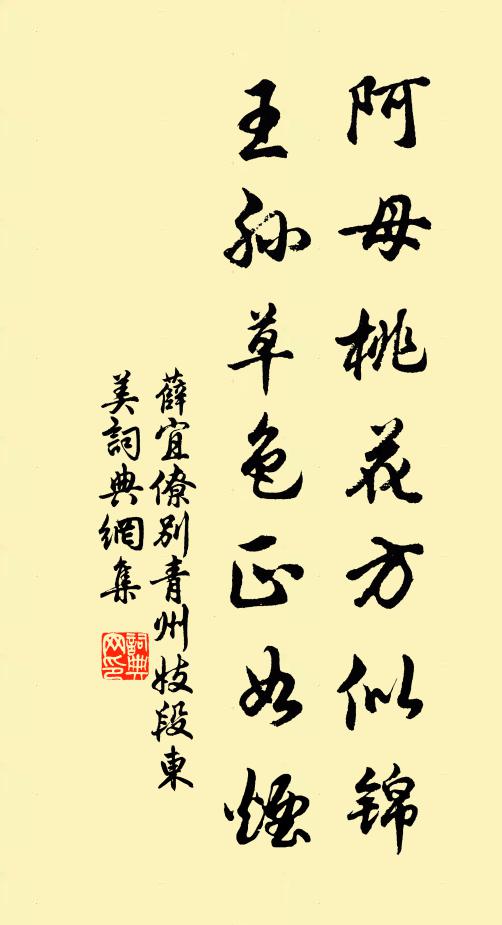 阿母桃花方似锦
王孙草色正如煙
薛宜僚别青州妓段東
美詞典網集
詞典网印